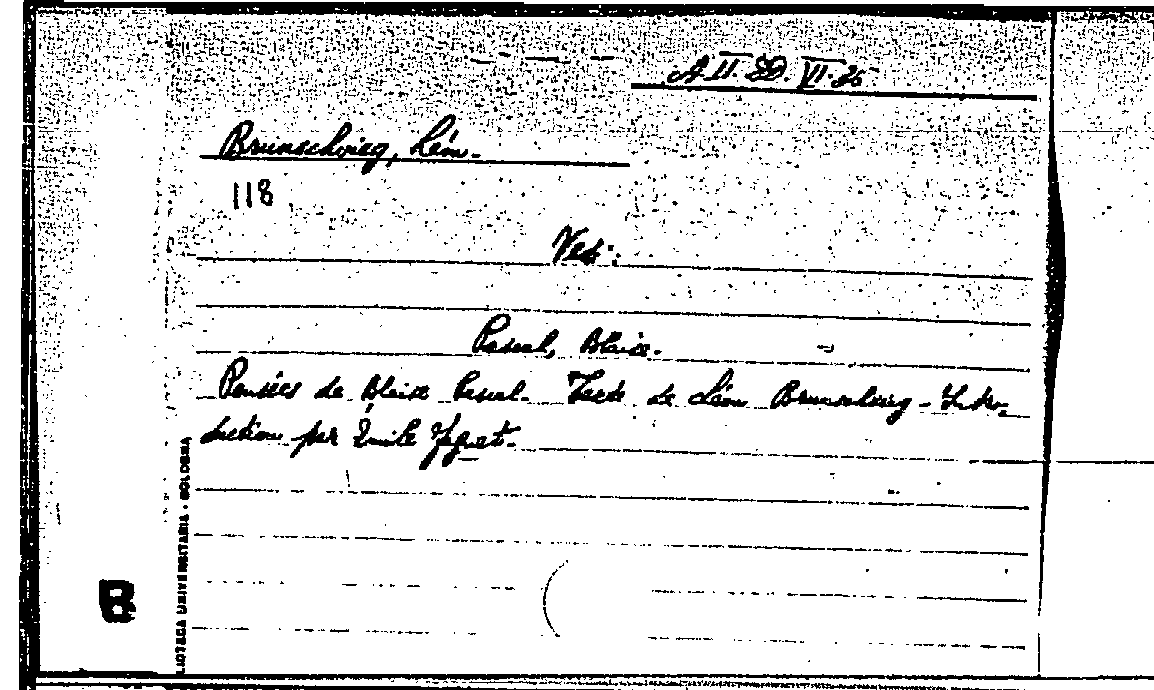 A.II.D. VII.26
Brunschvicg, Léon.
118
Ved:
Pascal, Blaise.
Pensées de Blaise Pascal. Texte de Léon Brunschvicg - Intro-
duction par Émile Faguet.
LIOTECA UNIVERSITARIA - BOLOGNA
B